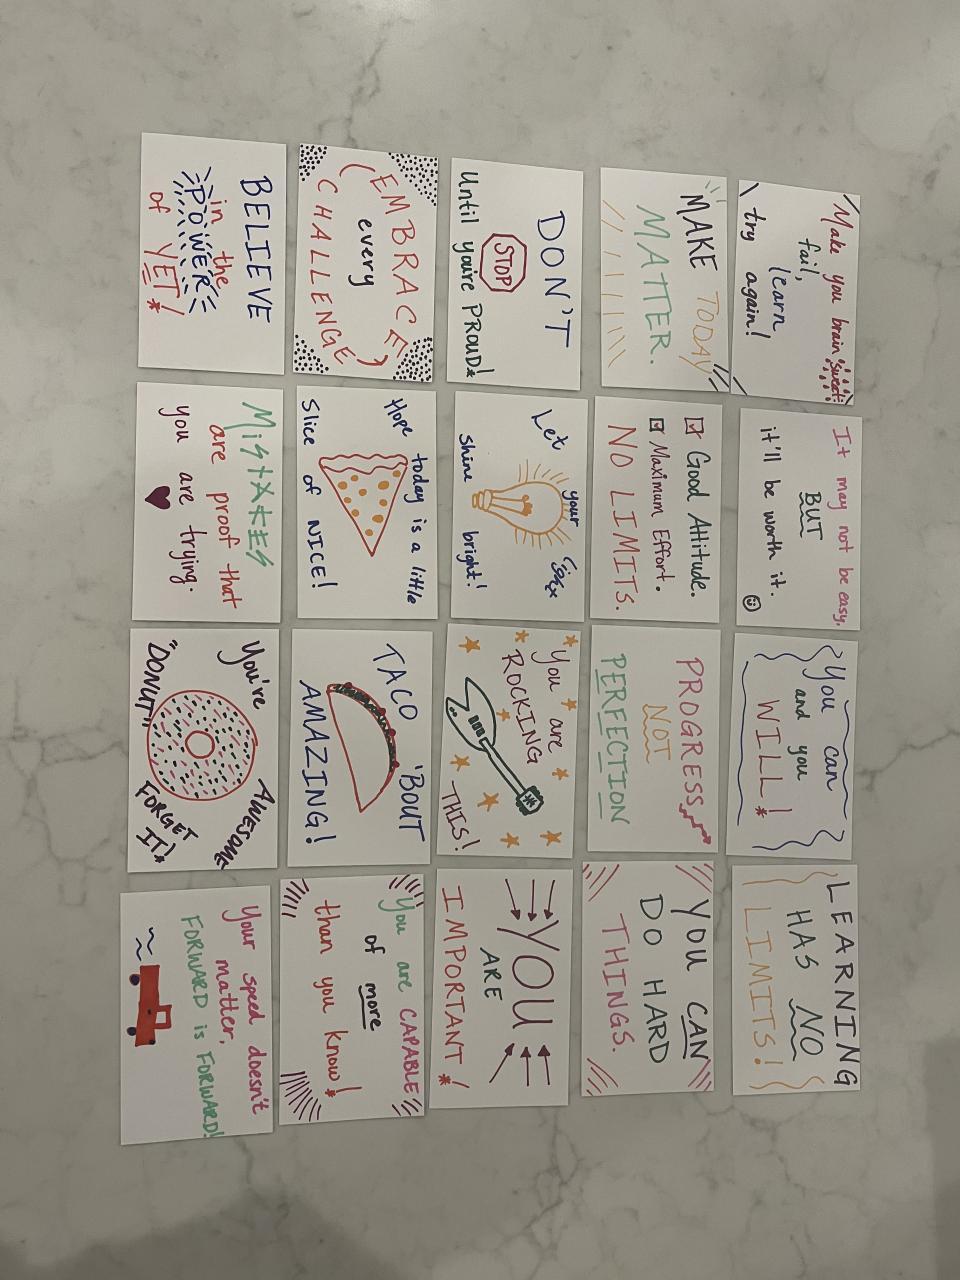 Make you brain sweat:
fail,
learn
try again!
It may not be easy.
BUT
it'll be worth it.
You can
and you
WILL!
LEARNING
HAS NO
LIMITS!
MAKE TODAY
MATTER.
Good Attitude.
Maximum Effort.
NO LIMITS.
PROGRESS
NOT
PERFECTION
YOU CAN
DO HARD
THINGS.
DON'T
STOP
Until you're PROUD!
Let your
shine bright!
You are
ROCKING
THIS!
YOU
ARE
IMPORTANT!
EMBRACE
every
CHALLENGE
Hope today is a little
Slice of NICE!
TACO 'BOUT
AMAZING!
You are CAPABLE
of more
than you know!
BELIEVE
in the
POWER
of YET!
MiSTAKES
are proof that
you are trying.
You're AWESOME
"DONUT" FORGET
IT!
Your speed doesn't
matter,
FORWARD is FORWARD!